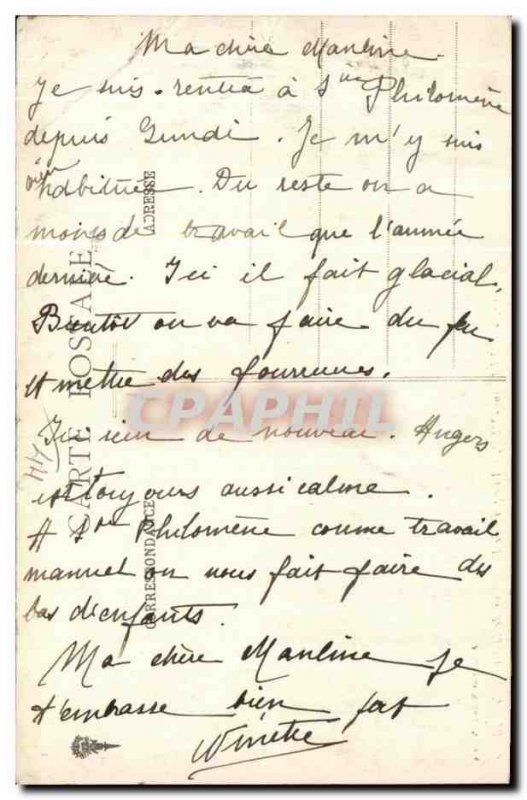 Ma chère Manline.
Je suis rentrée à Ste Philomène
depuis Lundi. Je m'y suis
bien habituée. Du reste on a
moins de travail que l'année
dernière. Ici il fait glacial.
Bientôt on va faire du feu
et mettre des fourrures.
Ici rien de nouveau. Angers
est toujours aussi calme.
A Ste Philomène comme travail
manuel on nous fait faire des
bas d'enfants.
Ma chère Manline je
t'embrasse bien fort
CARTE POSTALE
ADRESSE
CORRESPONDANCE
CPAPHIL